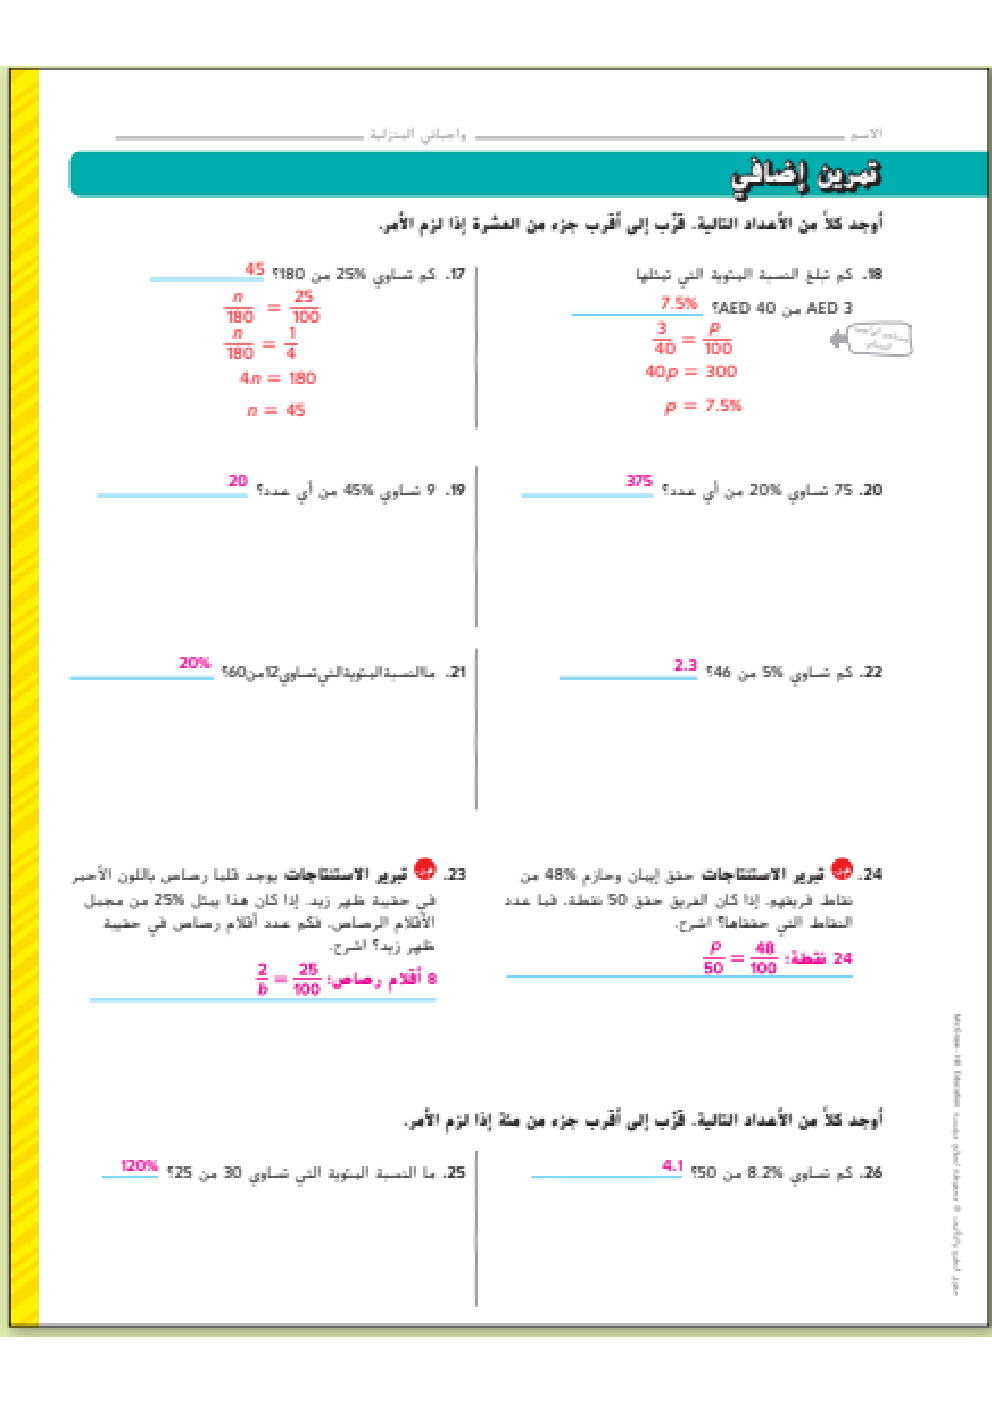 الاسم ــــــــــــ واجباتي المنزلية ــــــــــــ
تمرين إضافي
أوجد كلاً من الأعداد التالية. قرّب إلى أقرب جزء من العشرة إذا لزم الأمر.
17. كم تساوي 25% من 180؟ 45
n/180 = 25/100
n/180 = 1/4
4n = 180
n = 45
18. كم تبلغ النسبة المئوية التي تمثلها
AED 3 من AED 40؟ 7.5%
3/40 = p/100
40p = 300
p = 7.5%
19. 9 تساوي 45% من أي عدد؟ 20
20. 75 تساوي 20% من أي عدد؟ 375
21. ما النسبة المئوية التي تساوي 12 من 60؟ 20%
22. كم تساوي 5% من 46؟ 2.3
23. تبرير الاستنتاجات يوجد قلما رصاص باللون الأحمر
في حقيبة ظهر زيد. إذا كان هذا يمثل 25% من مجمل
الأقلام الرصاص، فكم عدد أقلام رصاص في حقيبة
ظهر زيد؟ اشرح.
8 أقلام رصاص؛ 25/100 = 2/b
24. تبرير الاستنتاجات حقق إيمان وحازم 48% من
نقاط فريقهم. إذا كان الفريق حقق 50 نقطة، فما عدد
النقاط التي حققاها؟ اشرح.
24 نقطة؛ 48/100 = p/50
أوجد كلاً من الأعداد التالية. قرّب إلى أقرب جزء من مئة إذا لزم الأمر.
25. ما النسبة المئوية التي تساوي 30 من 25؟ 120%
26. كم تساوي 8.2% من 50؟ 4.1
McGraw-Hill Education